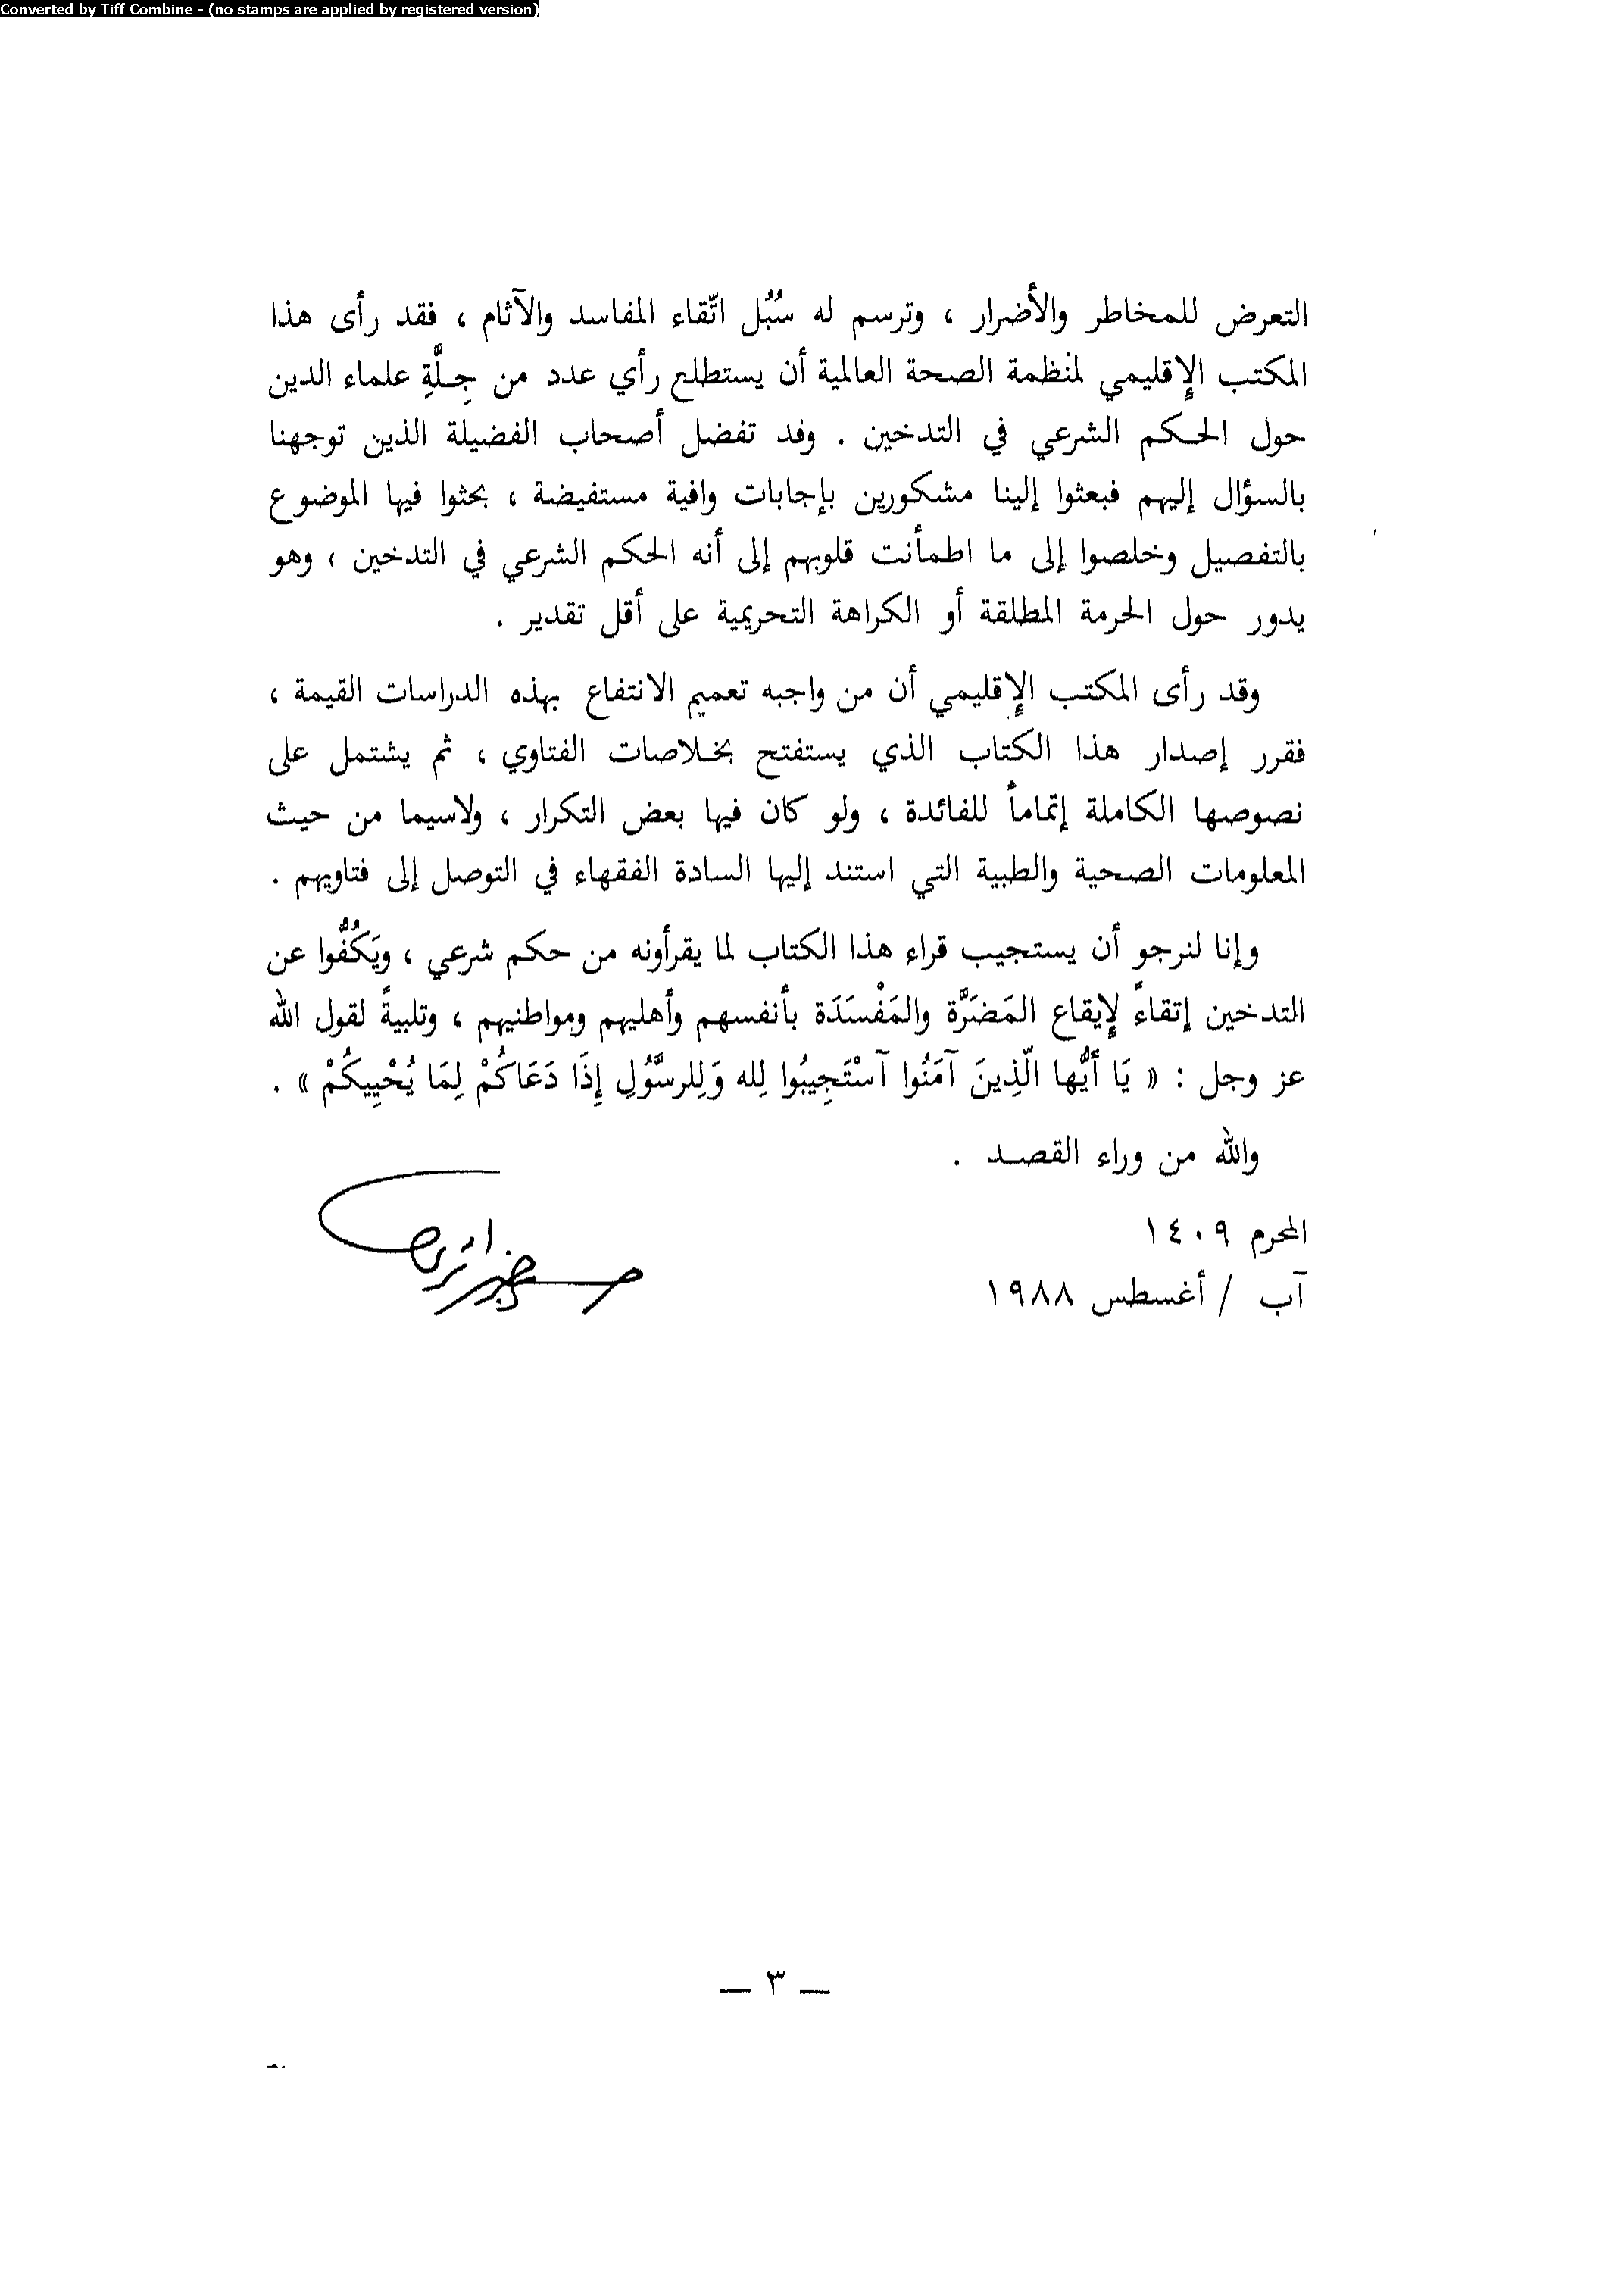 Converted by Tiff Combine - (no stamps are applied by registered version)
التعرض للمخاطر والأضرار ، وترسم له سُبُل اتّقاء المفاسد والآثام ، فقد رأى هذا
المكتب الإقليمي لمنظمة الصحة العالمية أن يستطلع رأي عدد من جِلَّةِ علماء الدين
حول الحكم الشرعي في التدخين . وفد تفضل أصحاب الفضيلة الذين توجهنا
بالسؤال إليهم فبعثوا إلينا مشكورين بإجابات وافية مستفيضة ، بحثوا فيها الموضوع
بالتفصيل وخلصوا إلى ما اطمأنت قلوبهم إلى أنه الحكم الشرعي في التدخين ، وهو
يدور حول الحرمة المطلقة أو الكراهة التحريمية على أقل تقدير .
وقد رأى المكتب الإقليمي أن من واجبه تعميم الانتفاع بهذه الدراسات القيمة ،
فقرر إصدار هذا الكتاب الذي يستفتح بخلاصات الفتاوي ، ثم يشتمل على
نصوصها الكاملة إتماماً للفائدة ، ولو كان فيها بعض التكرار ، ولاسيما من حيث
المعلومات الصحية والطبية التي استند إليها السادة الفقهاء في التوصل إلى فتاويهم .
وإنا لنرجو أن يستجيب قراء هذا الكتاب لما يقرأونه من حكم شرعي ، ويَكُفُّوا عن
التدخين إتقاءً لإيقاع المَضَرَّة والمَفْسَدَة بأنفسهم وأهليهم ومواطنيهم ، وتلبيةً لقول الله
عز وجل : « يَا أيُّها الّذِينَ آمَنُوا آسْتَجِيبُوا لِله وَلِلرسَّوُلِ إِذَا دَعَاكُمْ لِمَا يُحْيِيكُمْ » .
والله من وراء القصد .
المحرم ١٤٠٩
آب / أغسطس ١٩٨٨
— ٣ —